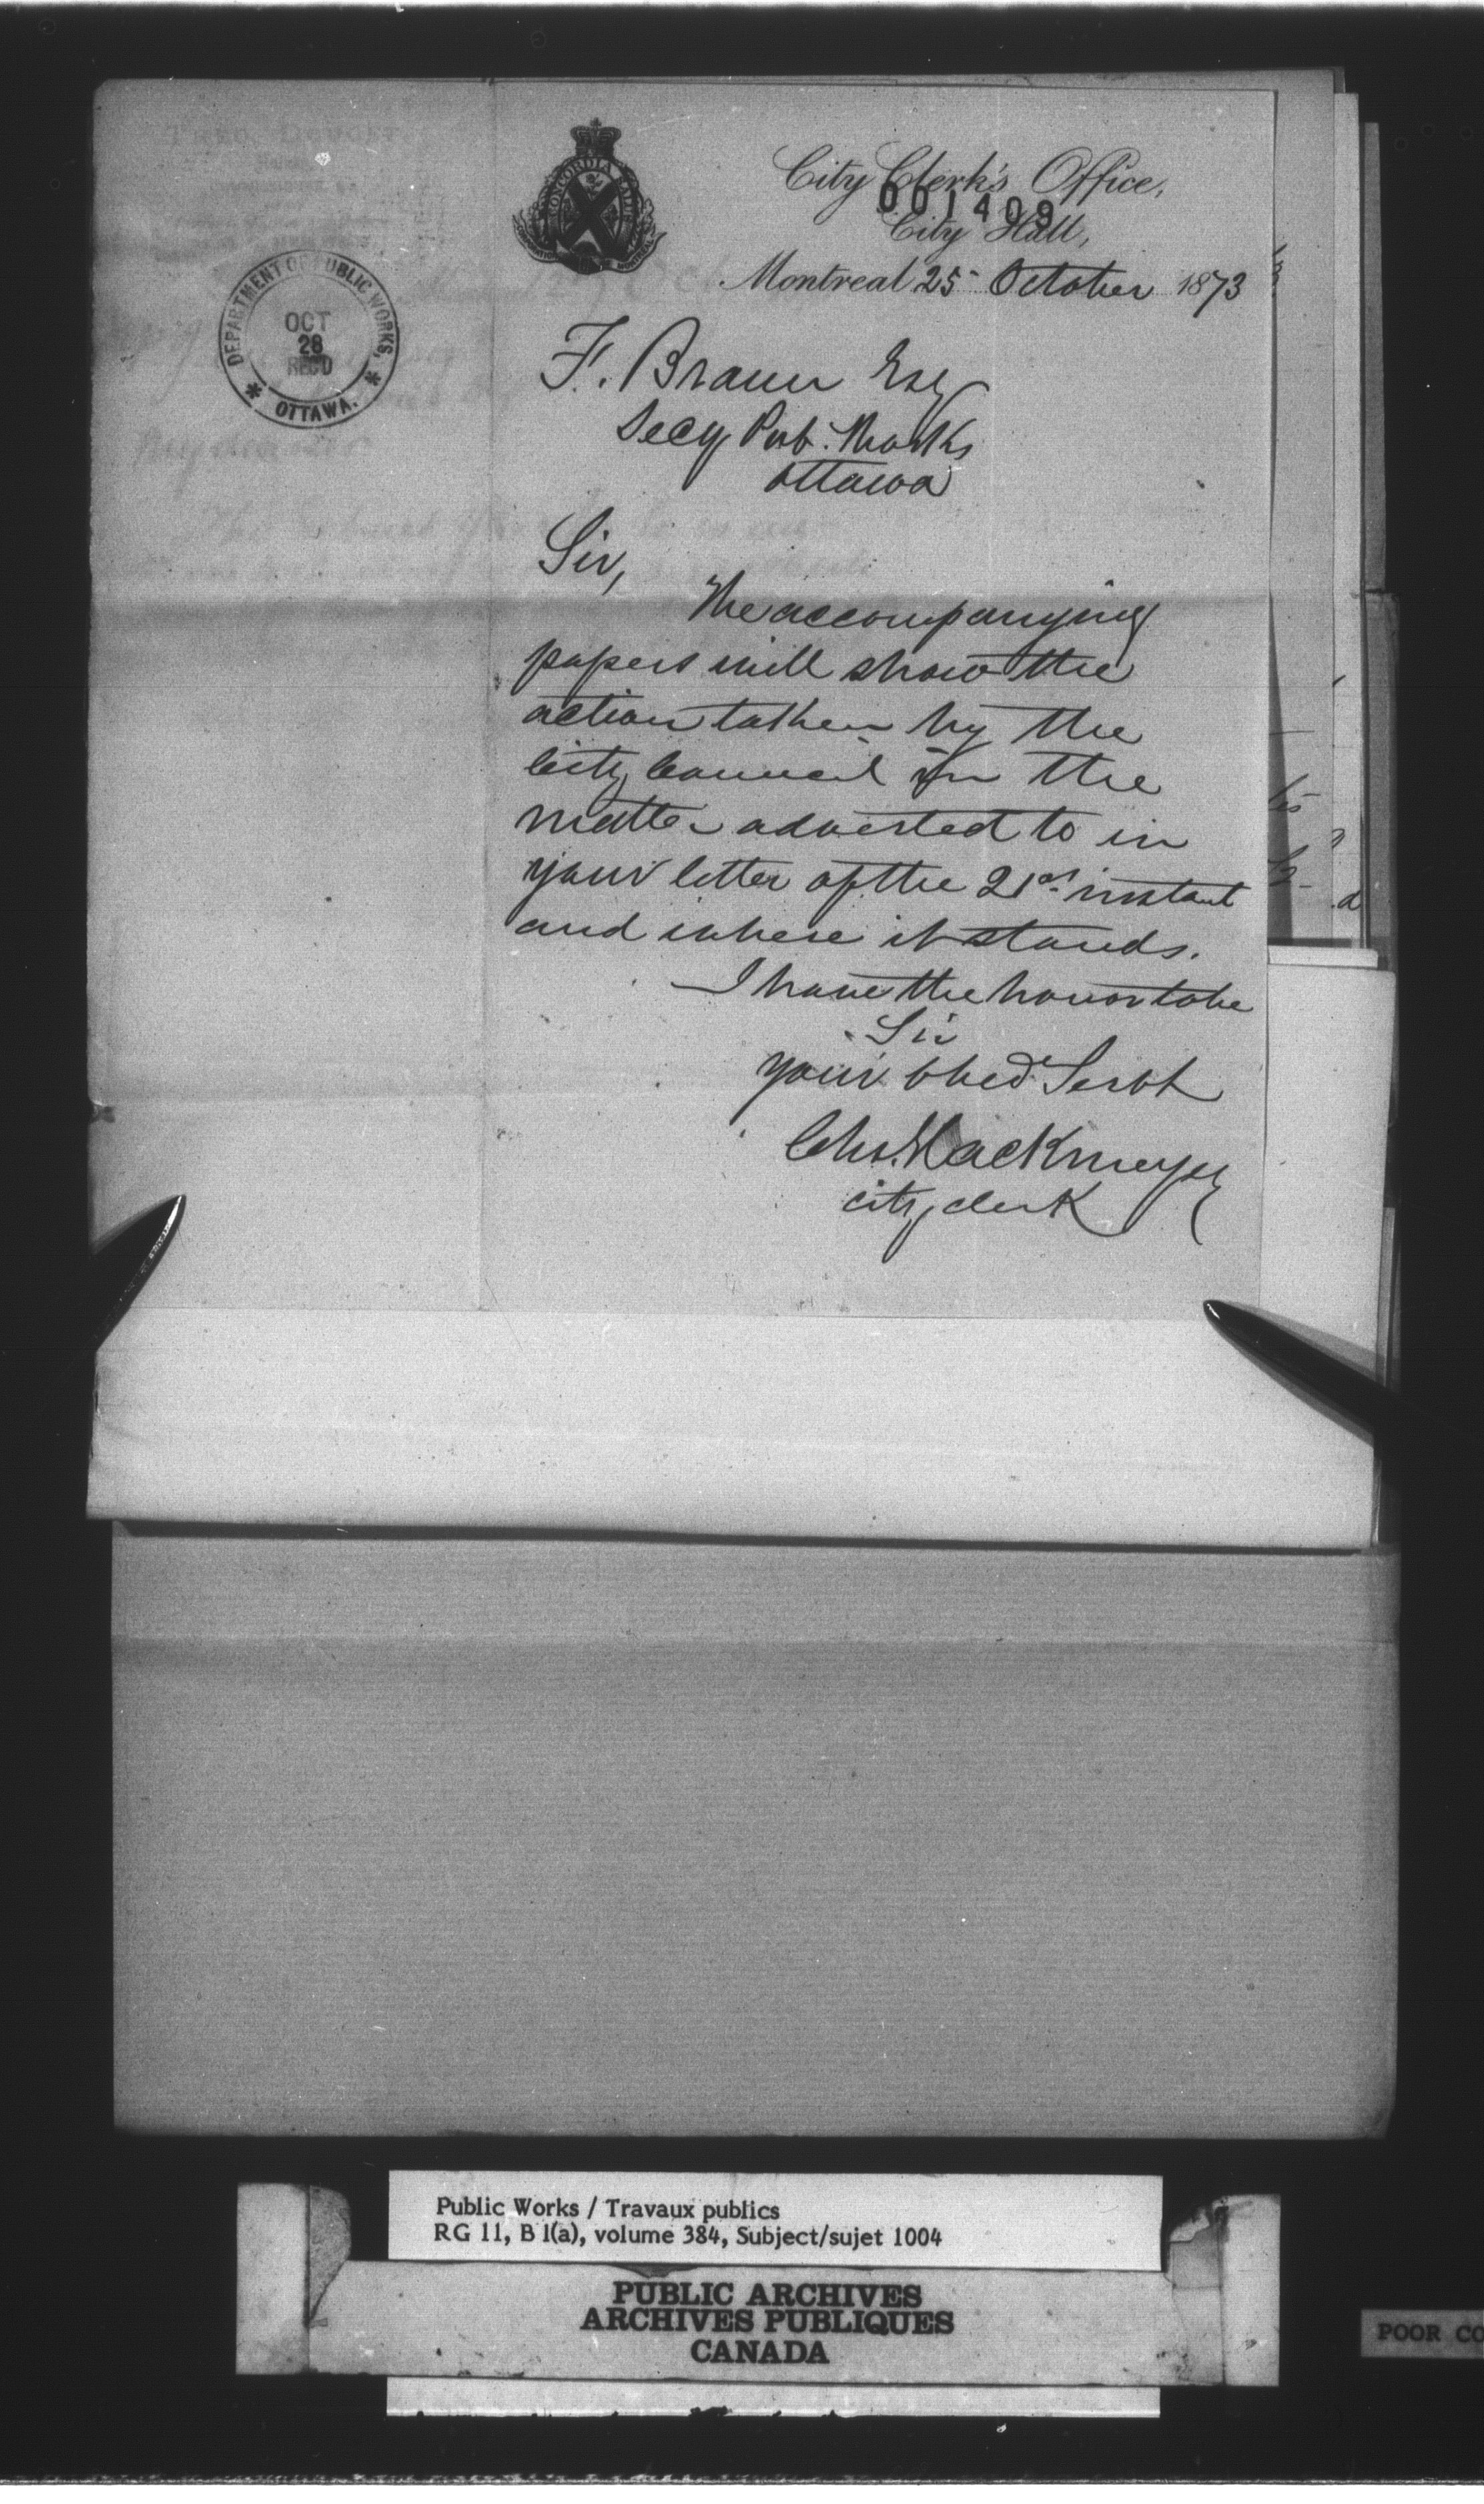 CONCORDIA SALUS
City Clerk's Office,
001409
City Hall,
Montreal 25 October 1873
DEPARTMENT OF PUBLIC WORKS,
OCT
28
REC'D
OTTAWA.
F. Braun Esq
Secy Pub. Works
Ottawa
Sir,
The accompanying
papers will show the
action taken by the
City Council in the
matter adverted to in
your letter of the 21st instant
and where it stands.
I have the honor to be
Sir
your obed Servt
Chs. Glackmeyer
City Clerk
Public Works / Travaux publics
RG 11, B 1(a), volume 384, Subject/sujet 1004
PUBLIC ARCHIVES
ARCHIVES PUBLIQUES
CANADA
POOR CO